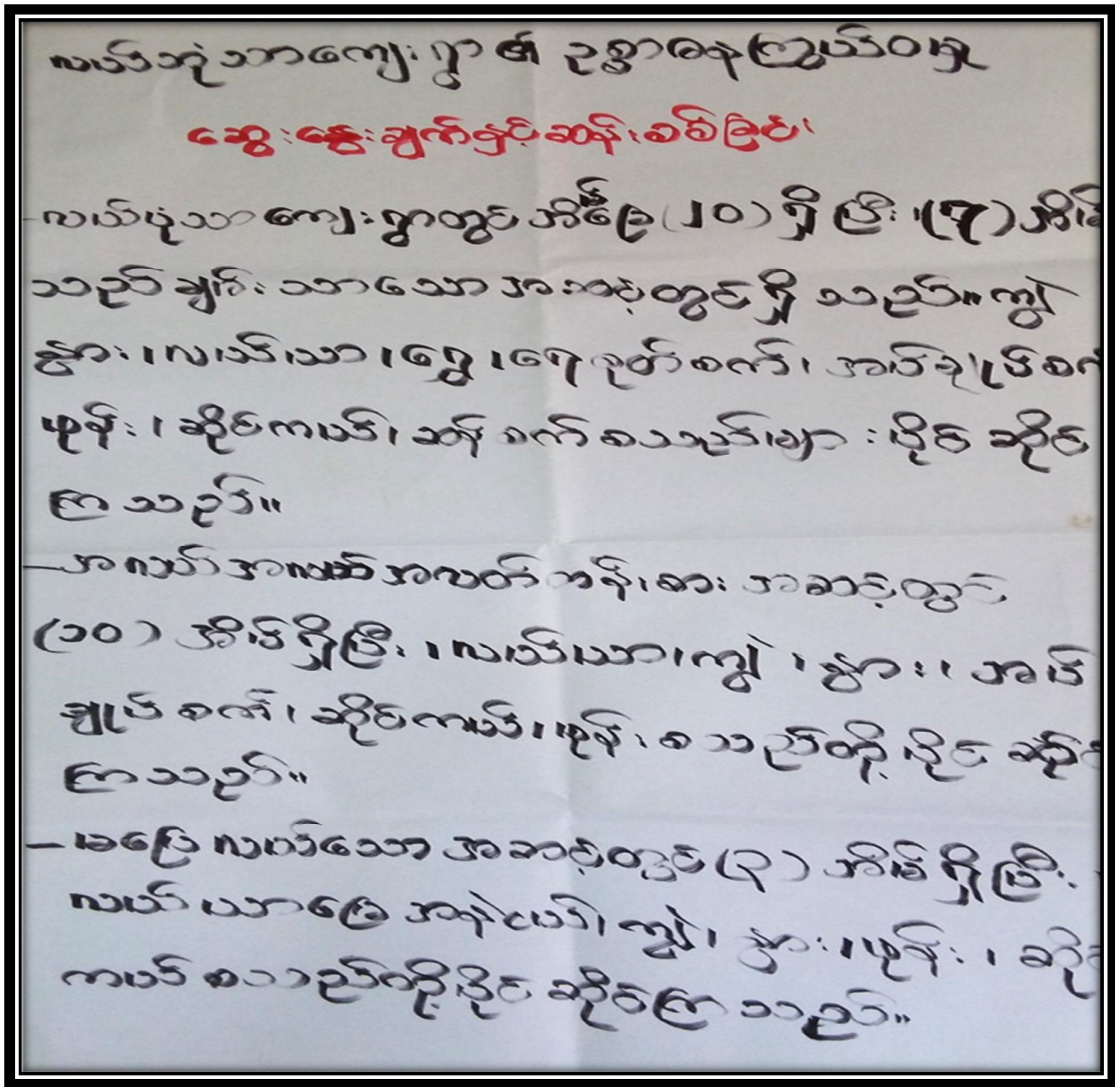 လယ်ဘုံသာကျေးရွာ၏ ဥစ္စာဓနကြွယ်ဝမှု
ဆွေးနွေးချက်နှင့်ဆန်းစစ်ခြင်း
-လယ်ပုံသာကျေးရွာတွင် အိမ်ခြေ(၂၀)ရှိပြီး၊ (7)အိမ်
သည် ချမ်းသာသော အဆင့်တွင်ရှိ သည်။ကျွဲ
နွား၊လယ်ယာ၊ရွှေ၊ရေစုတ်စက်၊ အပ်ချုပ်စက်
ဖုန်း၊ဆိုင်ကယ်၊ဆန်စက်စသည်များ ပိုင်ဆိုင်
ကြသည်။
-အလယ်အလတ်တန်းစားအဆင့်တွင်
(၁၀)အိမ်ရှိပြီး၊လယ်ယာ၊ကျွဲ၊နွား၊ အပ်
ချုပ်စက်၊ ဆိုင်ကယ်၊ဖုန်း၊စသည်တို့ပိုင်ဆိုင်
ကြသည်။
-မပြေလယ်သော အဆင့်တွင်(၃)အိမ်ရှိပြီး၊
လယ်ယာမြေ အနဲငယ်၊ ကျွဲ၊ နွား၊ဖုန်း၊ ဆိုင်
ကယ် စသည်တို့ပိုင်ဆိုင်ကြသည်။